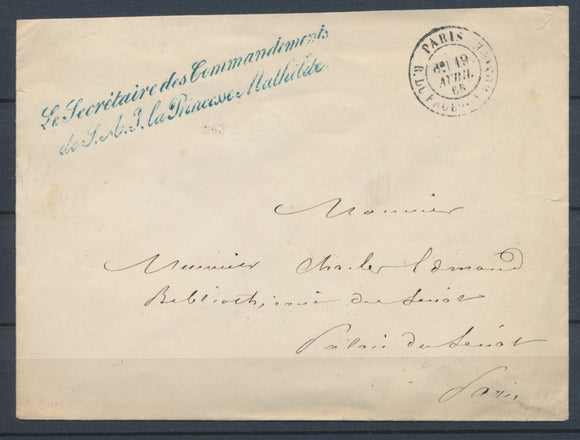 Le Secrétaire des Commandements
de S. A. I. la Princesse Mathilde.
PARIS
19
AVRIL
65
Monsieur
Monsieur Charles Edmond
Bibliothécaire du Sénat
Palais du Sénat
Paris